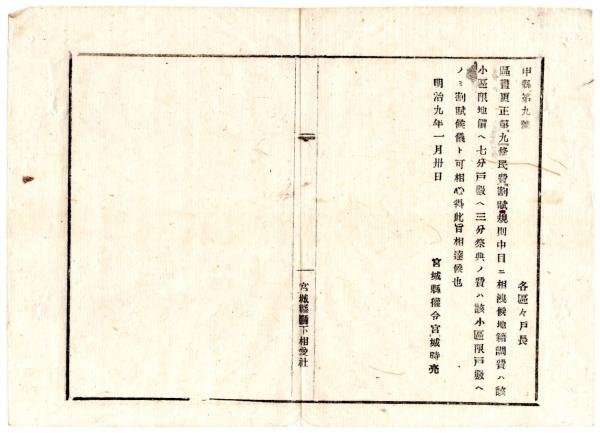 申縣第九號
各區々戸長
區畫更正第九條民費割賦規則中目ニ相洩候地籍調費ハ該
小區限地價ヘ七分戸數ヘ三分祭典ノ費ハ該小區限戸數ヘ
ノミ割賦候儀ト可相心得此旨相達候也
明治九年一月卅日
宮城縣權令宮城時亮
宮城縣 下相愛社